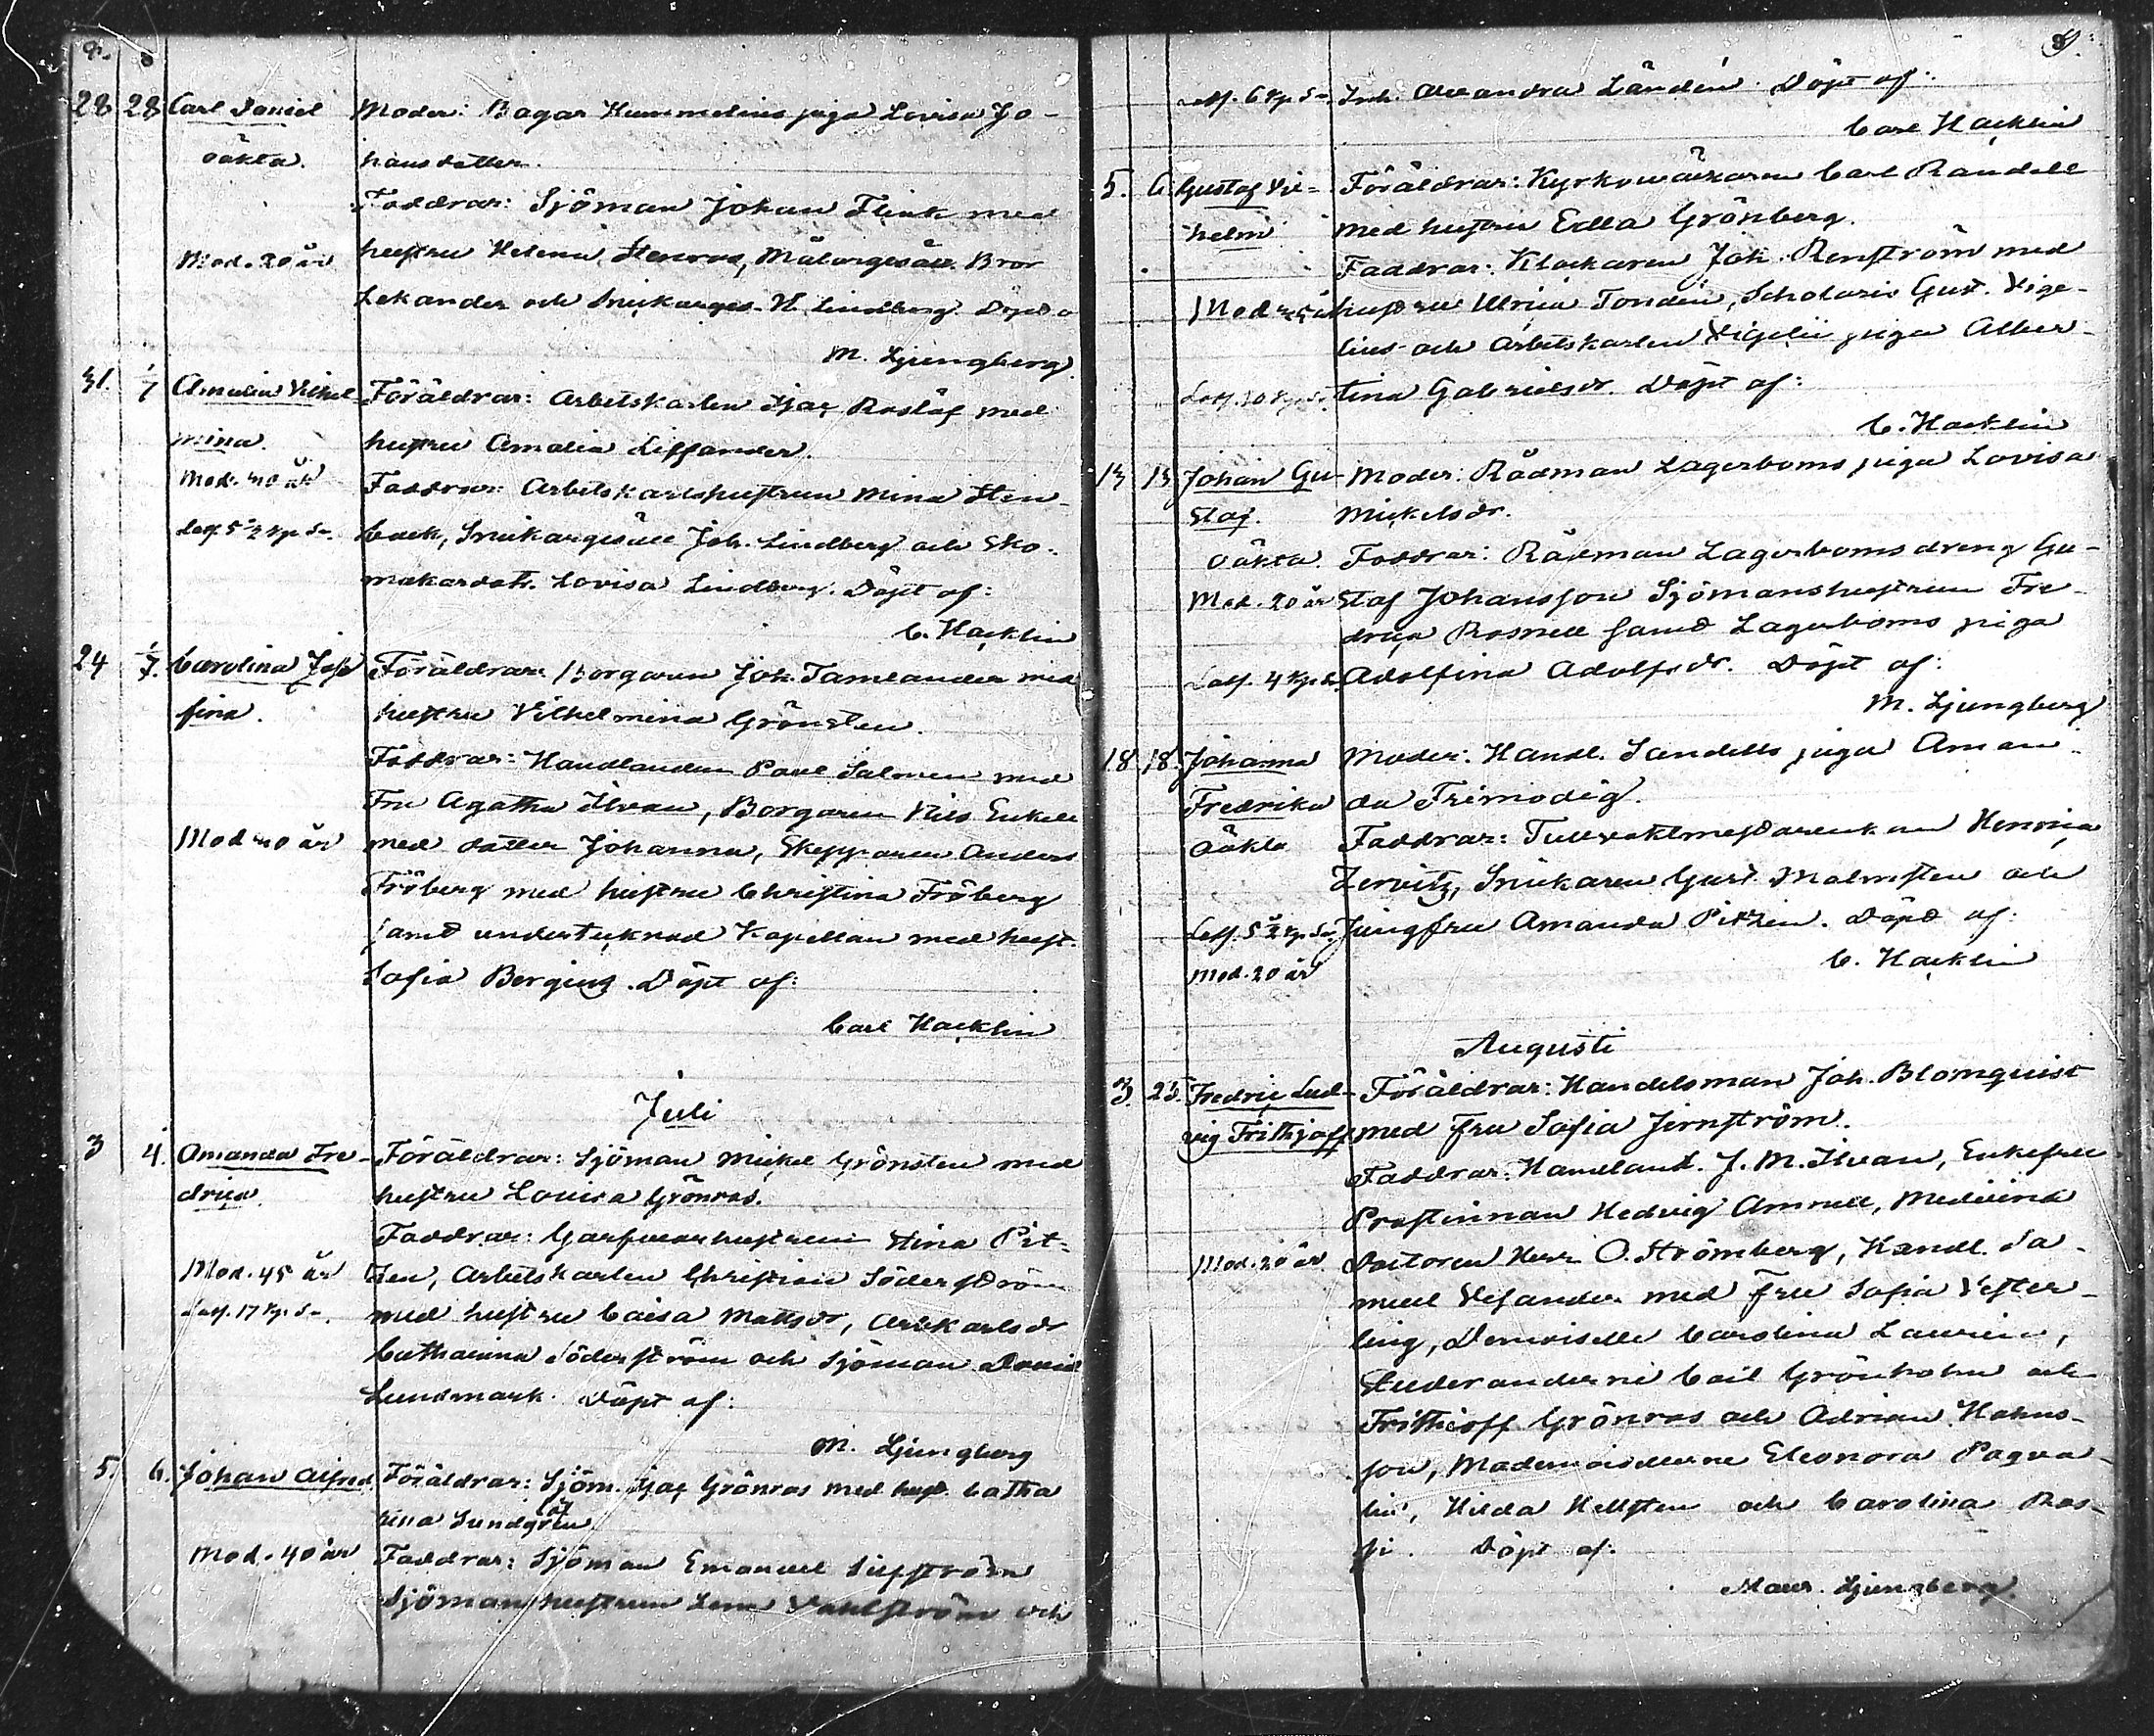 8.
28 28 Carl Daniel Moder: Bagar Hummelins piga Lovisa Jo-
oäkta. hansdotter.
Faddrar: Sjöman Johan Flink med
Mod. 20 år hustru Helena Stenros, Målargesäll Bror
Zekander och Snickarges. H. Lindberg. Döpt a
M. Ljungberg.
31. 1/7 Amalia Vilhel- Föräldrar: Arbetskarlen Isac Roslöf med
mina. hustru Amalia Liffander.
Mod. 40 år Faddrar: Arbetskarlshustrun Mina Sten-
Lösf. 5 1/2 kp. S-. back, Snickargesäll Joh. Lindberg och Sko-
makaredotr. Lovisa Lindberg. Döpt af:
C. Hacklin
24 1/7. Carolina Jose- Föräldrar: Borgaren Joh. Tamlander med
fina. hustru Vilhelmina Grönsten.
Faddrar: Handlanden Paul Salmen med
Fru Agatha Ilvan, Borgaren Nils Enkell
Mod 40 år med dotter Johanna, Skepparen Anders
Fröberg med hustru Christina Fröberg
samt undertecknad Kapellan med hust.
Sofia Bergius. Döpt af:
Carl Hacklin
Juli
3 4. Amanda Fre- Föräldrar: Sjöman Mickel Grönsten med
drica. hustru Lovisa Grönros.
Faddrar: Garfvarehustrun Stina Pit-
Mod. 45 år zen, Arbetskarlen Christian Söderström
17 kp. S-. med hustru Caisa Mattsdr, Arbkarlsdr
Catharina Söderström och Sjöman David
Lundmark. Döpt af:
M. Ljungberg
5. 6. Johan Alfred Föräldrar: Sjöm. Isac Grönros med hust. Catha
rina Sundgren
Mod. 40 år Faddrar: Sjöman Emanuel
Sjömanshustrun Lena Vahlström och
9.
6 kp S-. Alexandra Landén. Döpt af:
Carl Hacklin
5. 6. Gustaf Vil- Föräldrar: Kyrkoväktaren Carl Randell
helm med hustru Edla Grönberg.
Faddrar: Klockaren Joh. Renström med
Mod hustru Ulrica Tondén, Scholaris Gust. Vige-
lius och Arbetskarlen Vigelii piga Alber-
10 kp. S. tina Gabrielsdr. Döpt af:
C. Hacklin
13 13 Johan Gu- Moder: Rådman Lagerboms piga Lovisa
staf. Mickelsdr.
oäkta. Faddrar: Rådman Lagerboms dreng Gu-
Mod. 20 år staf Johansson Sjömanshustrun Fre-
drica Rosnell samt Lagerboms piga
4 kp. S. Adolfina Adolfsdr. Döpt af:
M. Ljungberg
18 18. Johanna Moder: Handl. Sandells piga Aman-
Fredrika da Frimodig.
oäkta Faddrar: Tullvaktmestarenkan Henrica
Zervitz, Snickaren Gust. Malmsten och
5 1/2 kp. S. Jungfru Amanda Pitzen. Döpt af:
Mod. 20 år C. Hacklin
Augusti
3. 23. Fredric Lud- Föräldrar: Handelsman Joh. Blomquist
vig Frithjoff med fru Sofia Jernström.
Faddrar: Handland. J. M. Ilvan, Enkefru
Prostinnan Hedvig Amnell, Medicina
Mod. 20 år Doctoren Herr O. Strömberg, Handl. Sa-
muel Vesander med fru Sofia Vester-
ling, Demoiselle Carolina Laurén,
Studeranderne Carl Grönholm och
Frithioff Grönros och Adrian Hohns-
son, Mademoisellerne Eleonora Paqva-
lin, Hilda Hellsten och Carolina Ros-
si. Döpt af:
Maur. Ljungberg.